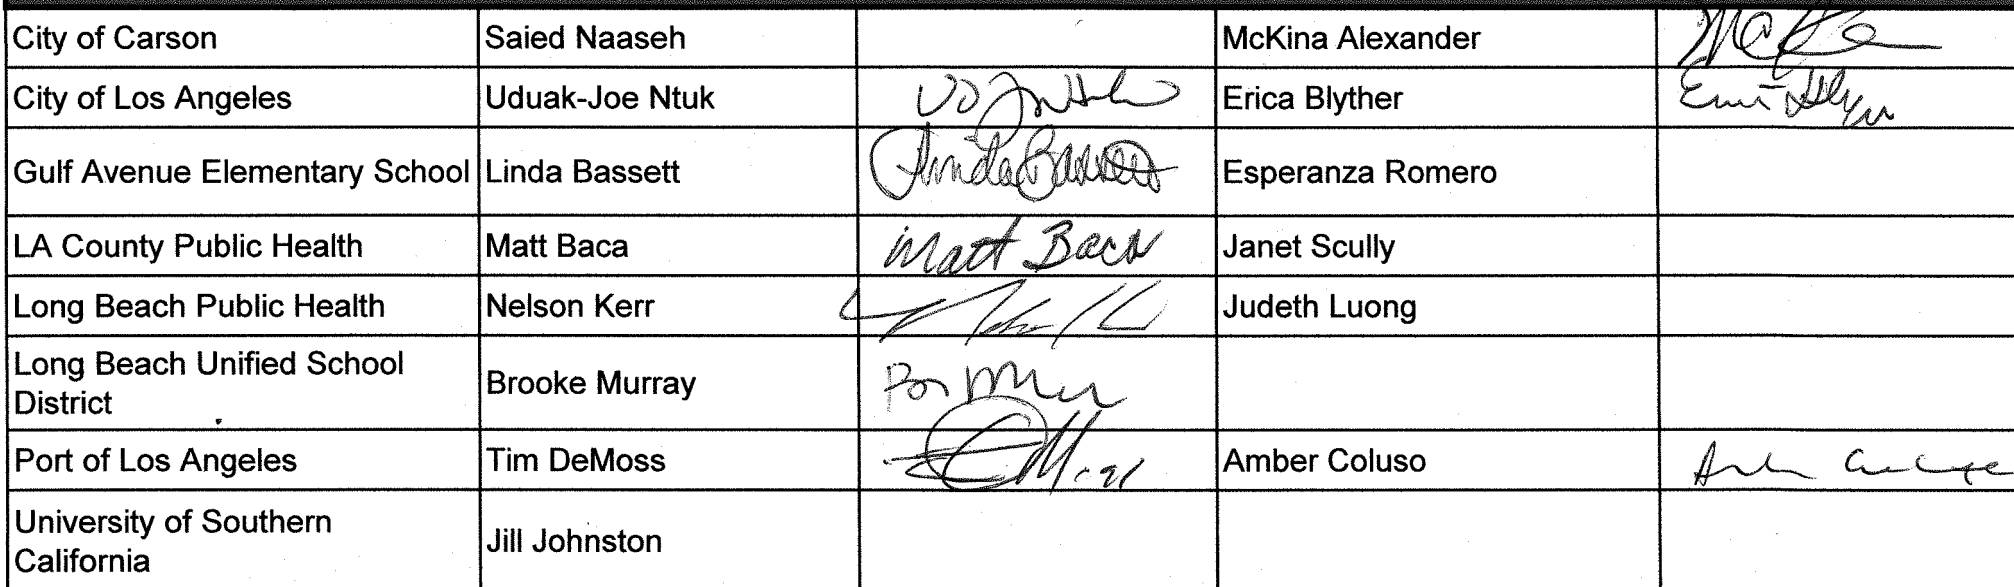 City of Carson Saied Naaseh McKina Alexander
City of Los Angeles Uduak-Joe Ntuk Erica Blyther
Gulf Avenue Elementary School Linda Bassett Linda Bassett Esperanza Romero
LA County Public Health Matt Baca Matt Baca Janet Scully
Long Beach Public Health Nelson Kerr Judeth Luong
Long Beach Unified School
District Brooke Murray
Port of Los Angeles Tim DeMoss Amber Coluso
University of Southern
California Jill Johnston